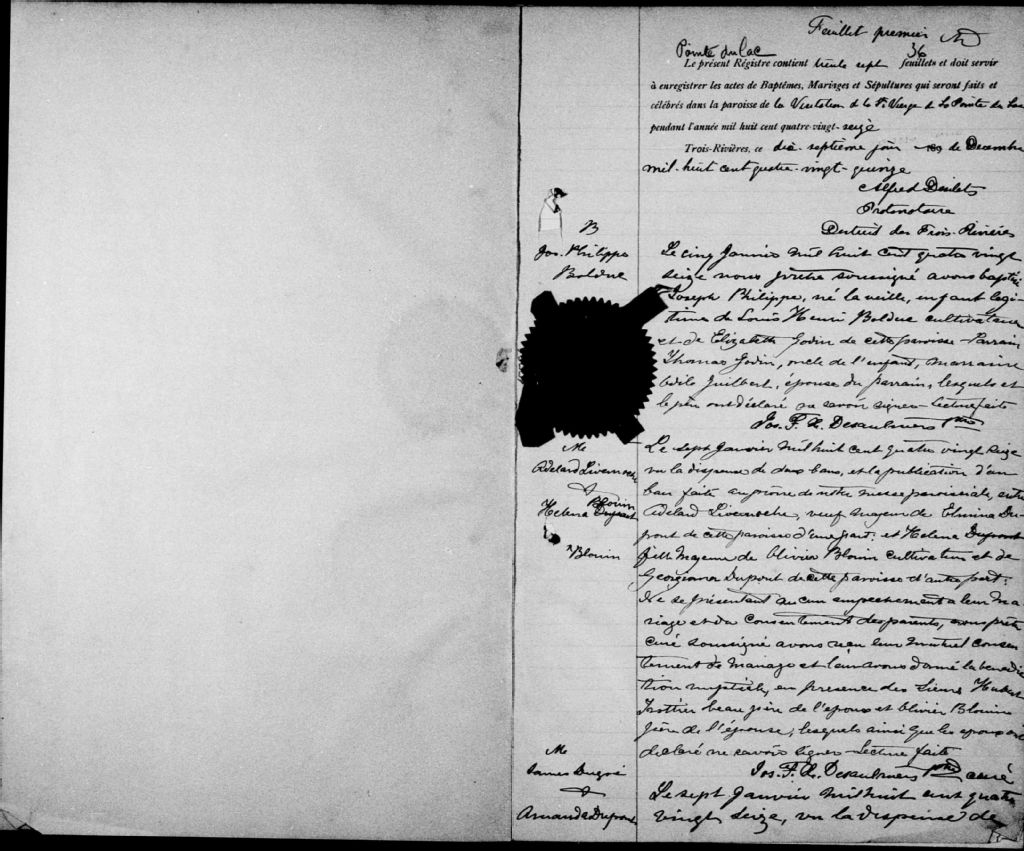 Feuillet premier
Pointe du Lac 36
Le présent Régistre contient trente sept feuillets et doit servir
à enregistrer les actes de Baptêmes, Mariages et Sépultures qui seront faits et
célébrés dans la paroisse de la Visitation de la Ste Vierge de La Pointe du Lac
pendant l'année mil huit cent quatre-vingt-seize
Trois-Rivières, ce dix-septième jour de Decembre
mil-huit cent quatre-vingt-quinze
Alfred
Protonotaire
District des Trois-Rivières
B
Jos. Philippe
Bolduc
Le cinq Janvier mil huit cent quatre vingt
seize nous prêtre soussigné avons baptisé
Joseph Philippe, né la veille, enfant légi-
time de Louis Henri Bolduc cultivateur
et de Elizabeth Godin de cette paroisse. Parrain
Thomas Godin, oncle de l'enfant, marraine
Odile Guilbert, épouse du parrain, lesquels et
le père ont déclaré ne savoir signer. Lecture faite
Jos. F. L. Desaulniers Ptre
M
Adelard Livernoche
&
Blouin
Helena Dupont
Blouin
Le sept Janvier mil huit cent quatre vingt seize
vu la dispense de deux bans, et la publication d'un
ban faite au prône de notre messe paroissiale, entre
Adelard Livernoche, veuf majeur de Elmina Du-
pont de cette paroisse d'une part, et Helena Dupont
fille majeure de Olivier Blouin cultivateur et de
Georgiana Dupont de cette paroisse d'autre part;
Ne se présentant aucun empechement a leur ma
riage et du consentement des parents, nous prêtre
curé soussigné avons reçu leur mutuel consen
tement de mariage et leur avons donné la bénédic
tion nuptiale, en presence des Sieurs Hubert
Trottier beau père de l'époux et Olivier Blouin
père de l'épouse, lesquels ainsi que les époux ont
declaré ne savoir signer. Lecture faite
Jos. F. L. Desaulniers Ptre curé
M
James Dugré
&
Armanda Dupont
Le sept Janvier mil huit cent quatre
vingt seize, vu la dispense de